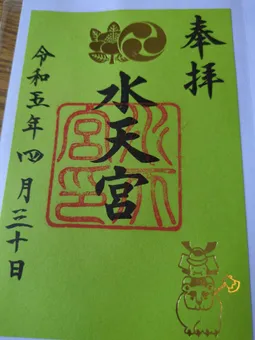 奉拝
水天宮
令和五年四月三十日